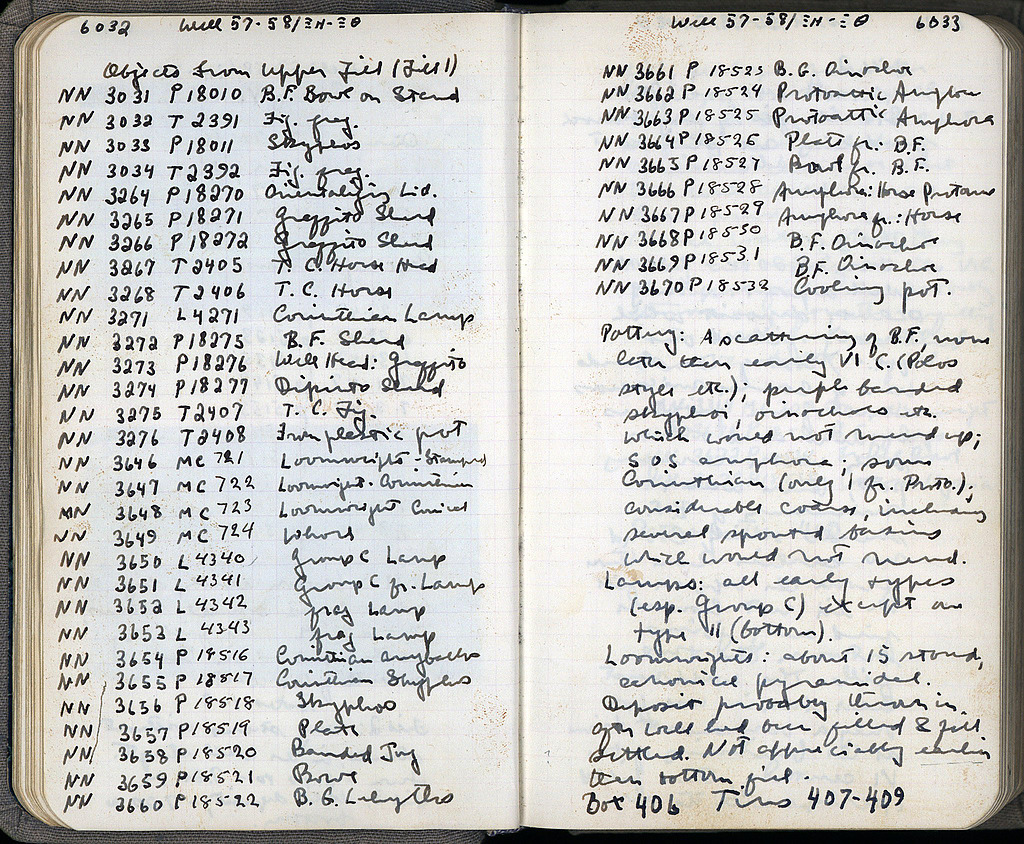 6032 Well 57-58/ΞΗ-ΞΘ
Objects from Upper Fill (Fill 1)
NN 3031 P 18010 B.F. Bowl on Stand
NN 3032 T 2391 Fig. frag.
NN 3033 P 18011 Skyphos
NN 3034 T 2392 Fig. frag.
NN 3264 P 18270 Orientalizing Lid.
NN 3265 P 18271 Graffito Sherd
NN 3266 P 18272 Graffito Sherd
NN 3267 T 2405 T. C. Horse Head
NN 3268 T 2406 T. C. Horse
NN 3271 L 4271 Corinthian Lamp
NN 3272 P 18275 B.F. Sherd
NN 3273 P 18276 Well Head: Graffito
NN 3274 P 18277 Dipinto Sherd
NN 3275 T 2407 T. C. Fig.
NN 3276 T 2408 From plastic pot
NN 3646 MC 721 Loomweight-Stamped
NN 3647 MC 722 Loomweight-Corinthian
NN 3648 MC 723 Loomweight Conical
NN 3649 MC 724 Whorl
NN 3650 L 4340 Group C Lamp
NN 3651 L 4341 Group C fr. Lamp
NN 3652 L 4342 frag Lamp
NN 3653 L 4343 frag Lamp
NN 3654 P 18516 Corinthian Aryballos
NN 3655 P 18517 Corinthian Skyphos
NN 3656 P 18518 Skyphos
NN 3657 P 18519 Plate
NN 3658 P 18520 Banded Jug
NN 3659 P 18521 Bowl
NN 3660 P 18522 B. G. Lekythos
Well 57-58/ΞΗ-ΞΘ 6033
NN 3661 P 18523 B. G. Oinochoe
NN 3662 P 18524 Protoattic Amphora
NN 3663 P 18525 Protoattic Amphora
NN 3664 P 18526 Plate fr.: B.F.
NN 3665 P 18527 Bowl fr. B.F.
NN 3666 P 18528 Amphora: Horse Protome
NN 3667 P 18529 Amphora fr.: Horse
NN 3668 P 18530 B.F. Oinochoe
NN 3669 P 18531 B.F. Oinochoe
NN 3670 P 18532 Cooking pot.
Pottery: A scattering of B.F., none
later than early VI C. (Polos
style etc.); purple banded
skyphoi, oinochoes etc.
which would not mend up;
S.O.S amphora; some
Corinthian (only 1 fr. Proto.);
considerable coarse, including
several spouted basins
which would not mend.
Lamps: all early types
(esp. Group C) except one
type 11 (bottom).
Loomweights: about 15 stand,
conical pyramidal.
Deposit probably thrown in
after well had been filled & fill
settled. Not appreciably earlier
than bottom fill.
Box 406 Tins 407-409